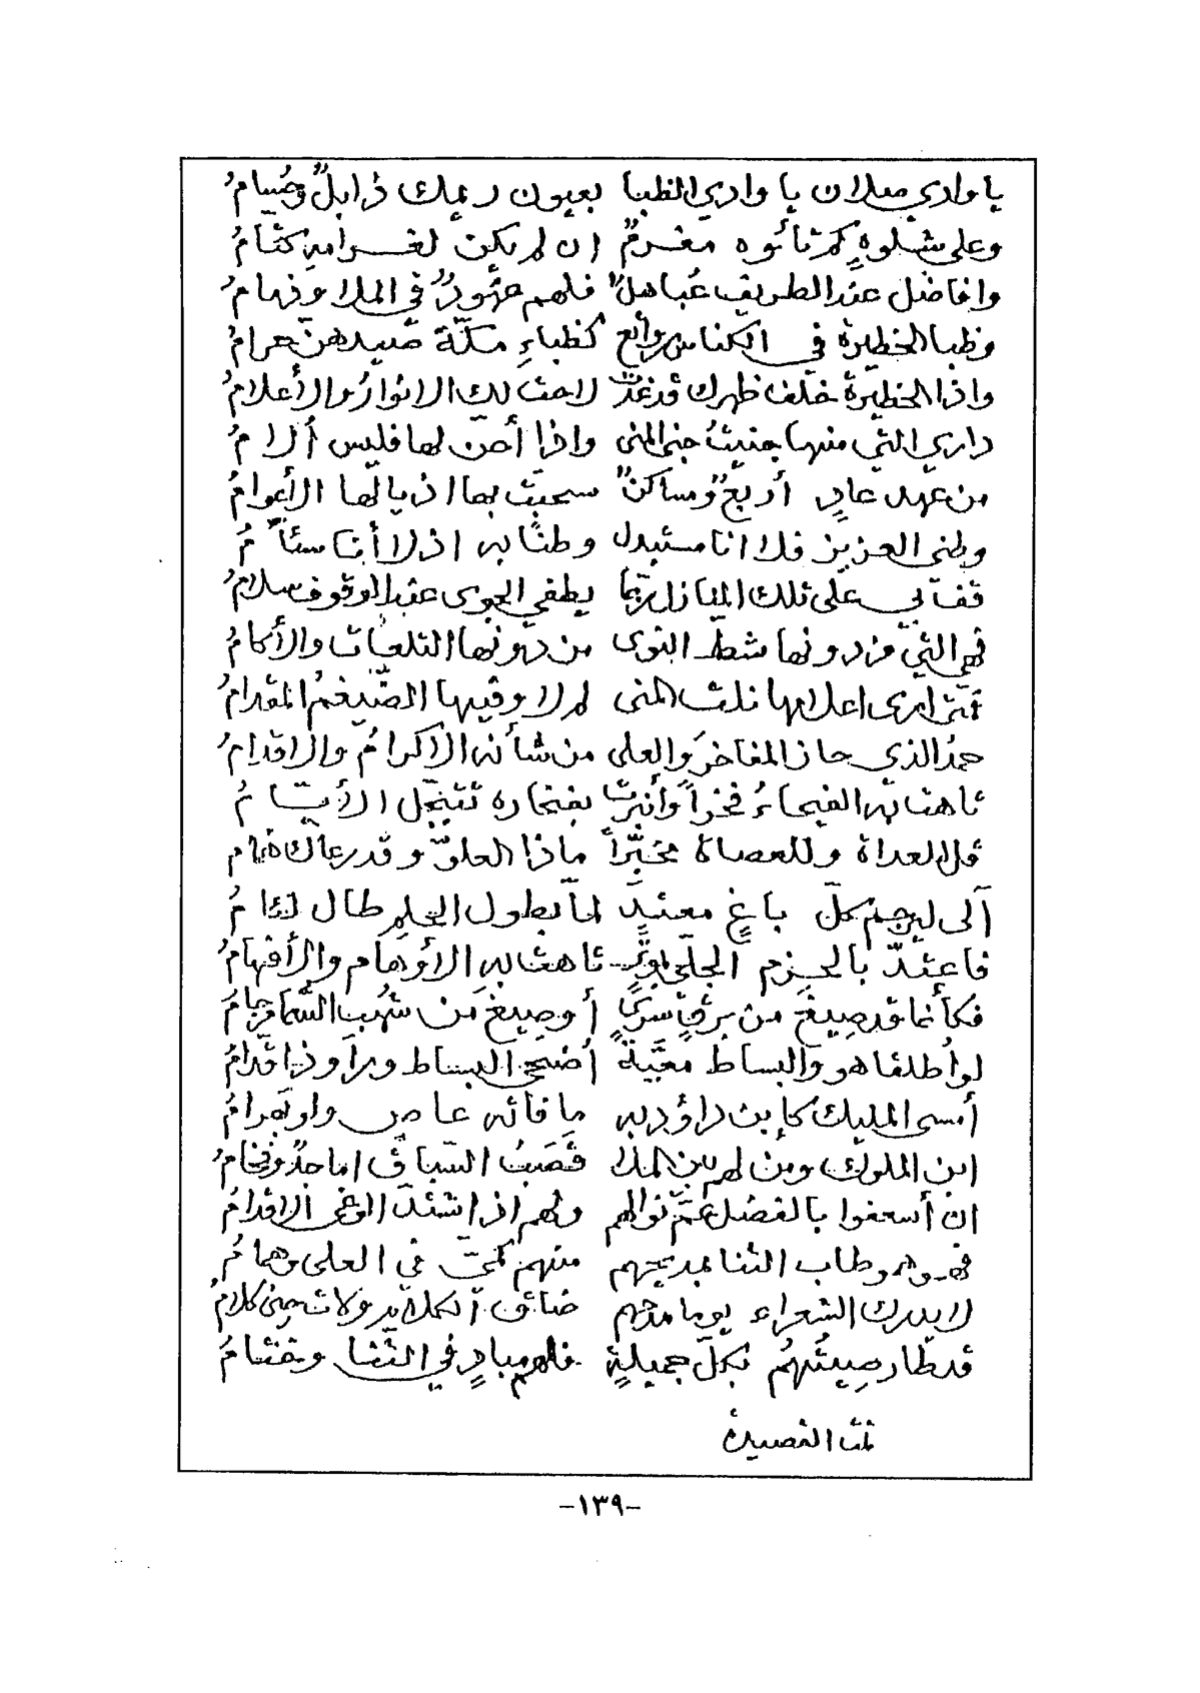 يا وادي ميلان يا وادي الظبا بعيون ريمك ذابلٌ وصُيامُ
وعلى شلوهٍ كم تأئوه مغرمٌ ان لم يكن لغرامهِ كتّامُ
وافاضل عند الطريف عُباهلٌ فلهم عهُودٌ في الملا وذمامُ
وظبا الخطيرة في الكناس روائع كظباءِ مكّة صَيدهنّ حرامُ
واذا الخطيرة خلف ظهرك قد غدت لاحت لك الانوارُ والأعلامُ
داري التي منها جنيتُ جنى المنى واذا أحنّ لها فليس أُلامُ
من عهد عادٍ أربعٌ ومساكنٌ سحبت بها اذيالها الأعوامُ
وطني العزيز فلا انا مستبدل وطنًا به اذ لا أنا سئآمُ
قف بي على تلك المنازل ربّما يطفي الجوى عند الوقوف سلامُ
فهي التي من دونها شطّ النوى من دونها التلعات والأكامُ
فمتى ارى اعلامها نلت المنى لم لا وفيها الضّيغمُ المقدامُ
حمدُ الذي حاز المفاخرَ والعلى من شأنه الاكرامُ والاقدامُ
تاهت به الفيحاءُ فخراً وأنبرت بفخاره تتبجّل الأيّامُ
قل للعداة وللعصاة مخبّراً ماذا العلوّ وقد رعاك همام
آلى ليرجم كلّ باغٍ معتدٍ لمّا بطول الحلمِ طال لئامُ
فاعتدّ بالحزم الجلّي تاهت به الأوهام والأفهامُ
فكأنما قد صِيغَ من برقٍ سرىٍ أو صِيغَ من شُهُب السّما مرجامُ
لو أطلقا هو والبساط معيّةً أضحى البساط ورآ وذا قدّامُ
أمسى المليك كإبن داؤد به ما فاته عاصٍ ولو بهرامُ
ابن الملوك ومن لهم بين الملا قَصَبُ السّباق اماجدٌ وفخامُ
ان أسعفوا بالفضل عمّ نوالهم ولهم اذا اشتدّ الوغى الاقدامُ
فهمُ وهم وطاب الثنا بمديحهم منهم كميّ في العلى وهمامُ
لا يدرك الشعراء يوما مدحهم ضاق الكلام ولات حين كلامُ
قد طار صِيتُهُمُ بكلّ جميلةٍ فلهم مبادٍ في الثّنا وختامُ
تمّت القصيدة
-١٣٩-